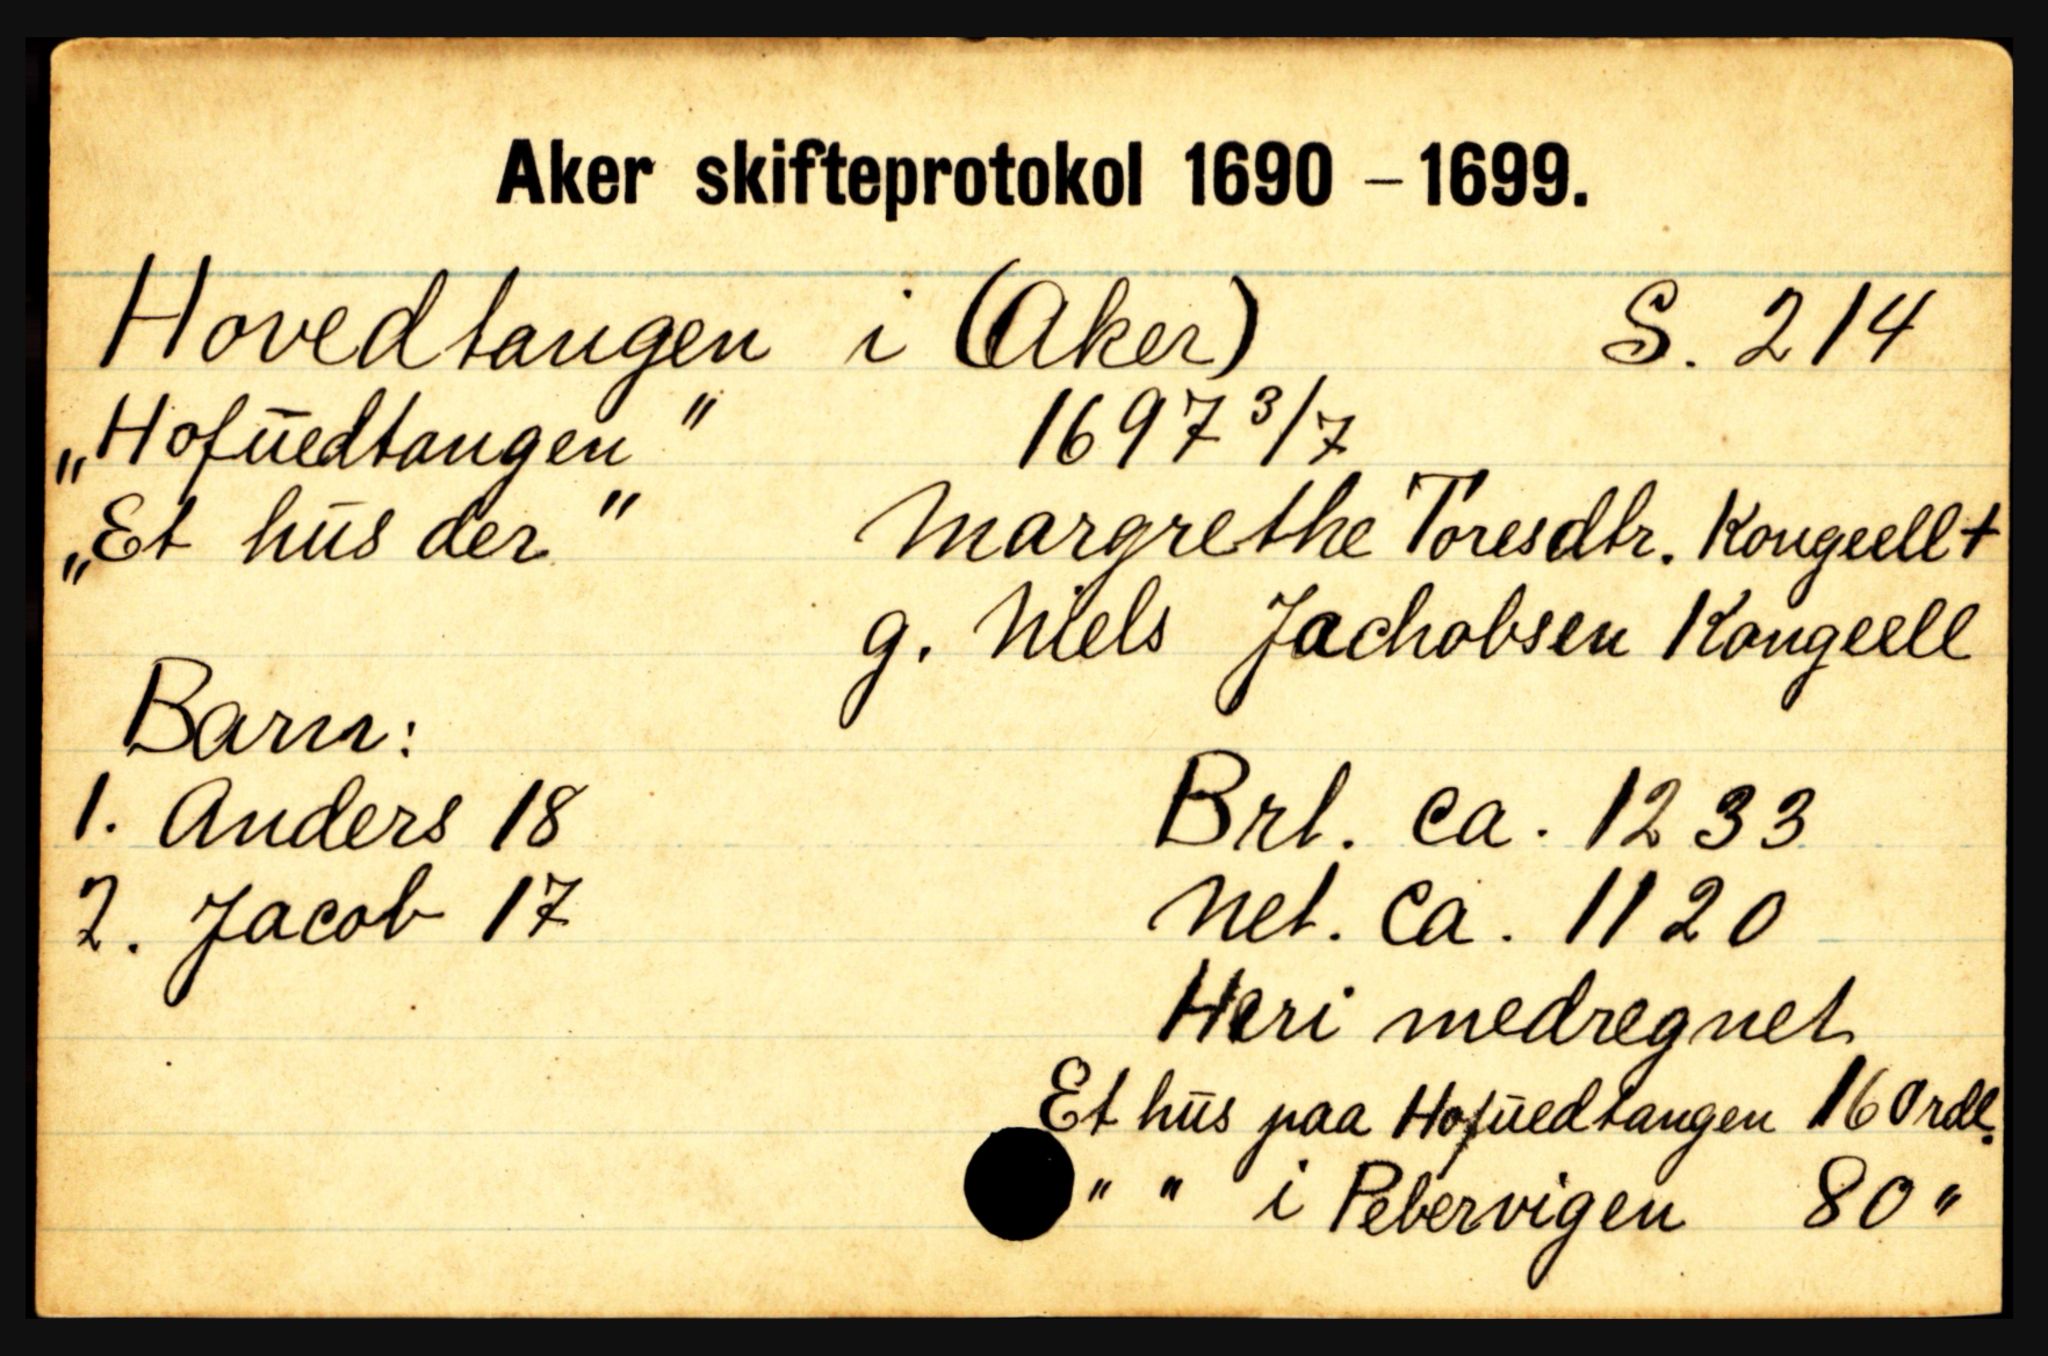 Aker skifteprotokol 1690 – 1699.
Hovedtangen i (Aker) S. 214
„Hofŭedtangen" 1697 3/7
„Et hŭs der" Margrethe Toresdtr. Kongeell +
g. Niels Jachobsen Kongeell
Barn:
1. Anders 18 Brt. ca. 1233
2. Jacob 17 Net. ca. 1120
Heri medregnet
Et hŭs paa Hofŭedtangen 160 rdl.
" " i Pebervigen 80 "